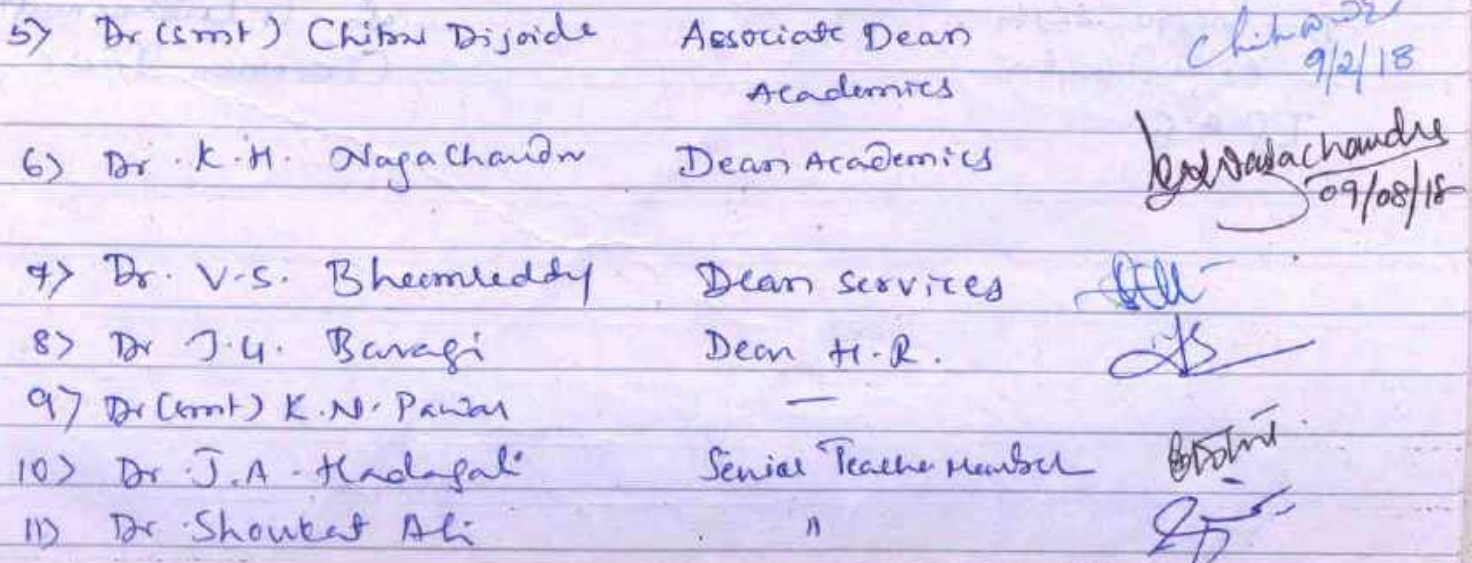 5) Dr (smt) Chitra Dijoide Associate Dean
Academics
9/2/18
6) Dr. K.H. Nagachandra Dean Academics
Nagachandra
09/08/18
7) Dr. V.S. Bheemreddy Dean services
8) Dr J.G. Baragi Dean H.R.
9) Dr (smt) K.N. Pawar —
10) Dr J.A. Hadagali Senior Teacher Member
11) Dr Shoukat Ali "